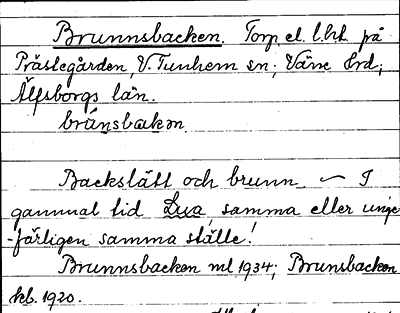 Brunnsbacken. Torp el. l.ht på
Prästegården, V. Tunhem sn; Väne Hrd;
Älfsborgs län.
brùnsbakən
Backslätt och brunn. — I
gammal tid Lya, samma eller unge-
-färligen samma ställe!
Brunnsbacken ml 1934; Brunsbacken
kb. 1920.